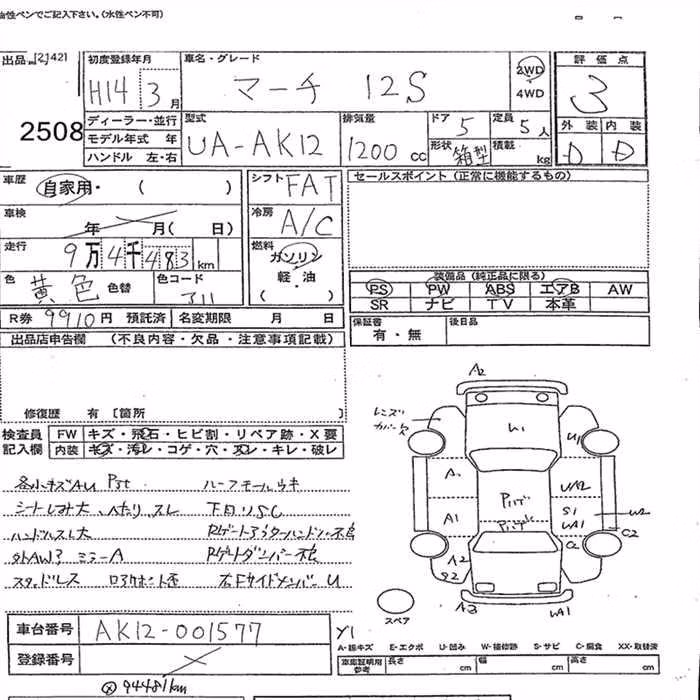 油性ペンでご記入下さい。(水性ペン不可)
出品 [2142]
2508
初度登録年月
H14 3月
車名・グレード
マーチ 12S
2WD
4WD
評価点
3
外装 内装
D D
ディーラー・並行
モデル年式 年
ハンドル 左・右
型式
UA-AK12
排気量
1200 cc
ドア 5
定員 5人
形状 箱型
積載 kg
車歴
自家用・ ( )
車検
年 月( 日)
走行
9万4千483km
色
黄色 色替
色コード
シフト FAT
冷房 A/C
燃料
ガソリン
軽・油
( )
セールスポイント (正常に機能するもの)
装備品 (純正品に限る)
PS PW ABS エアB AW
SR ナビ TV 本革
R券 9910円 預託済
名変期限 月 日
保証書
有・無
後日品
出品店申告欄 (不良内容・欠品・注意事項記載)
修復歴 有 [箇所 ]
検査員
記入欄
FW キズ・飛石・ヒビ割・リペア跡・X要
内装 キズ・汚レ・コゲ・穴・スレ・キレ・破レ
各小キズAU Pst
ハーフモールウキ
シートしみ大 ヘたり、スレ
下回りSC
ハンドルスレ大
外AW? ミラーA
Rゲートダンパー不良
スタッドレス
右Fサイドメンバー U
A2
レンズ
カバー
U1
U1
A1
UA2
S1
UA1
C2
C2
A2
S2
A3
UA1
スペア
車台番号
AK12-001577
登録番号
Y1
A-線キズ E-エクボ U-凹み W-補修跡 S-サビ C-腐食 XX-取替済
車庫証明用
参考
長さ cm
幅 cm
高さ cm
94481km